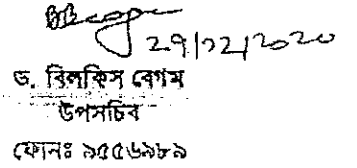 29/12/2020
ড. বিলকিস বেগম
উপসচিব
ফোনঃ ৯৫৫৬৯৮৯